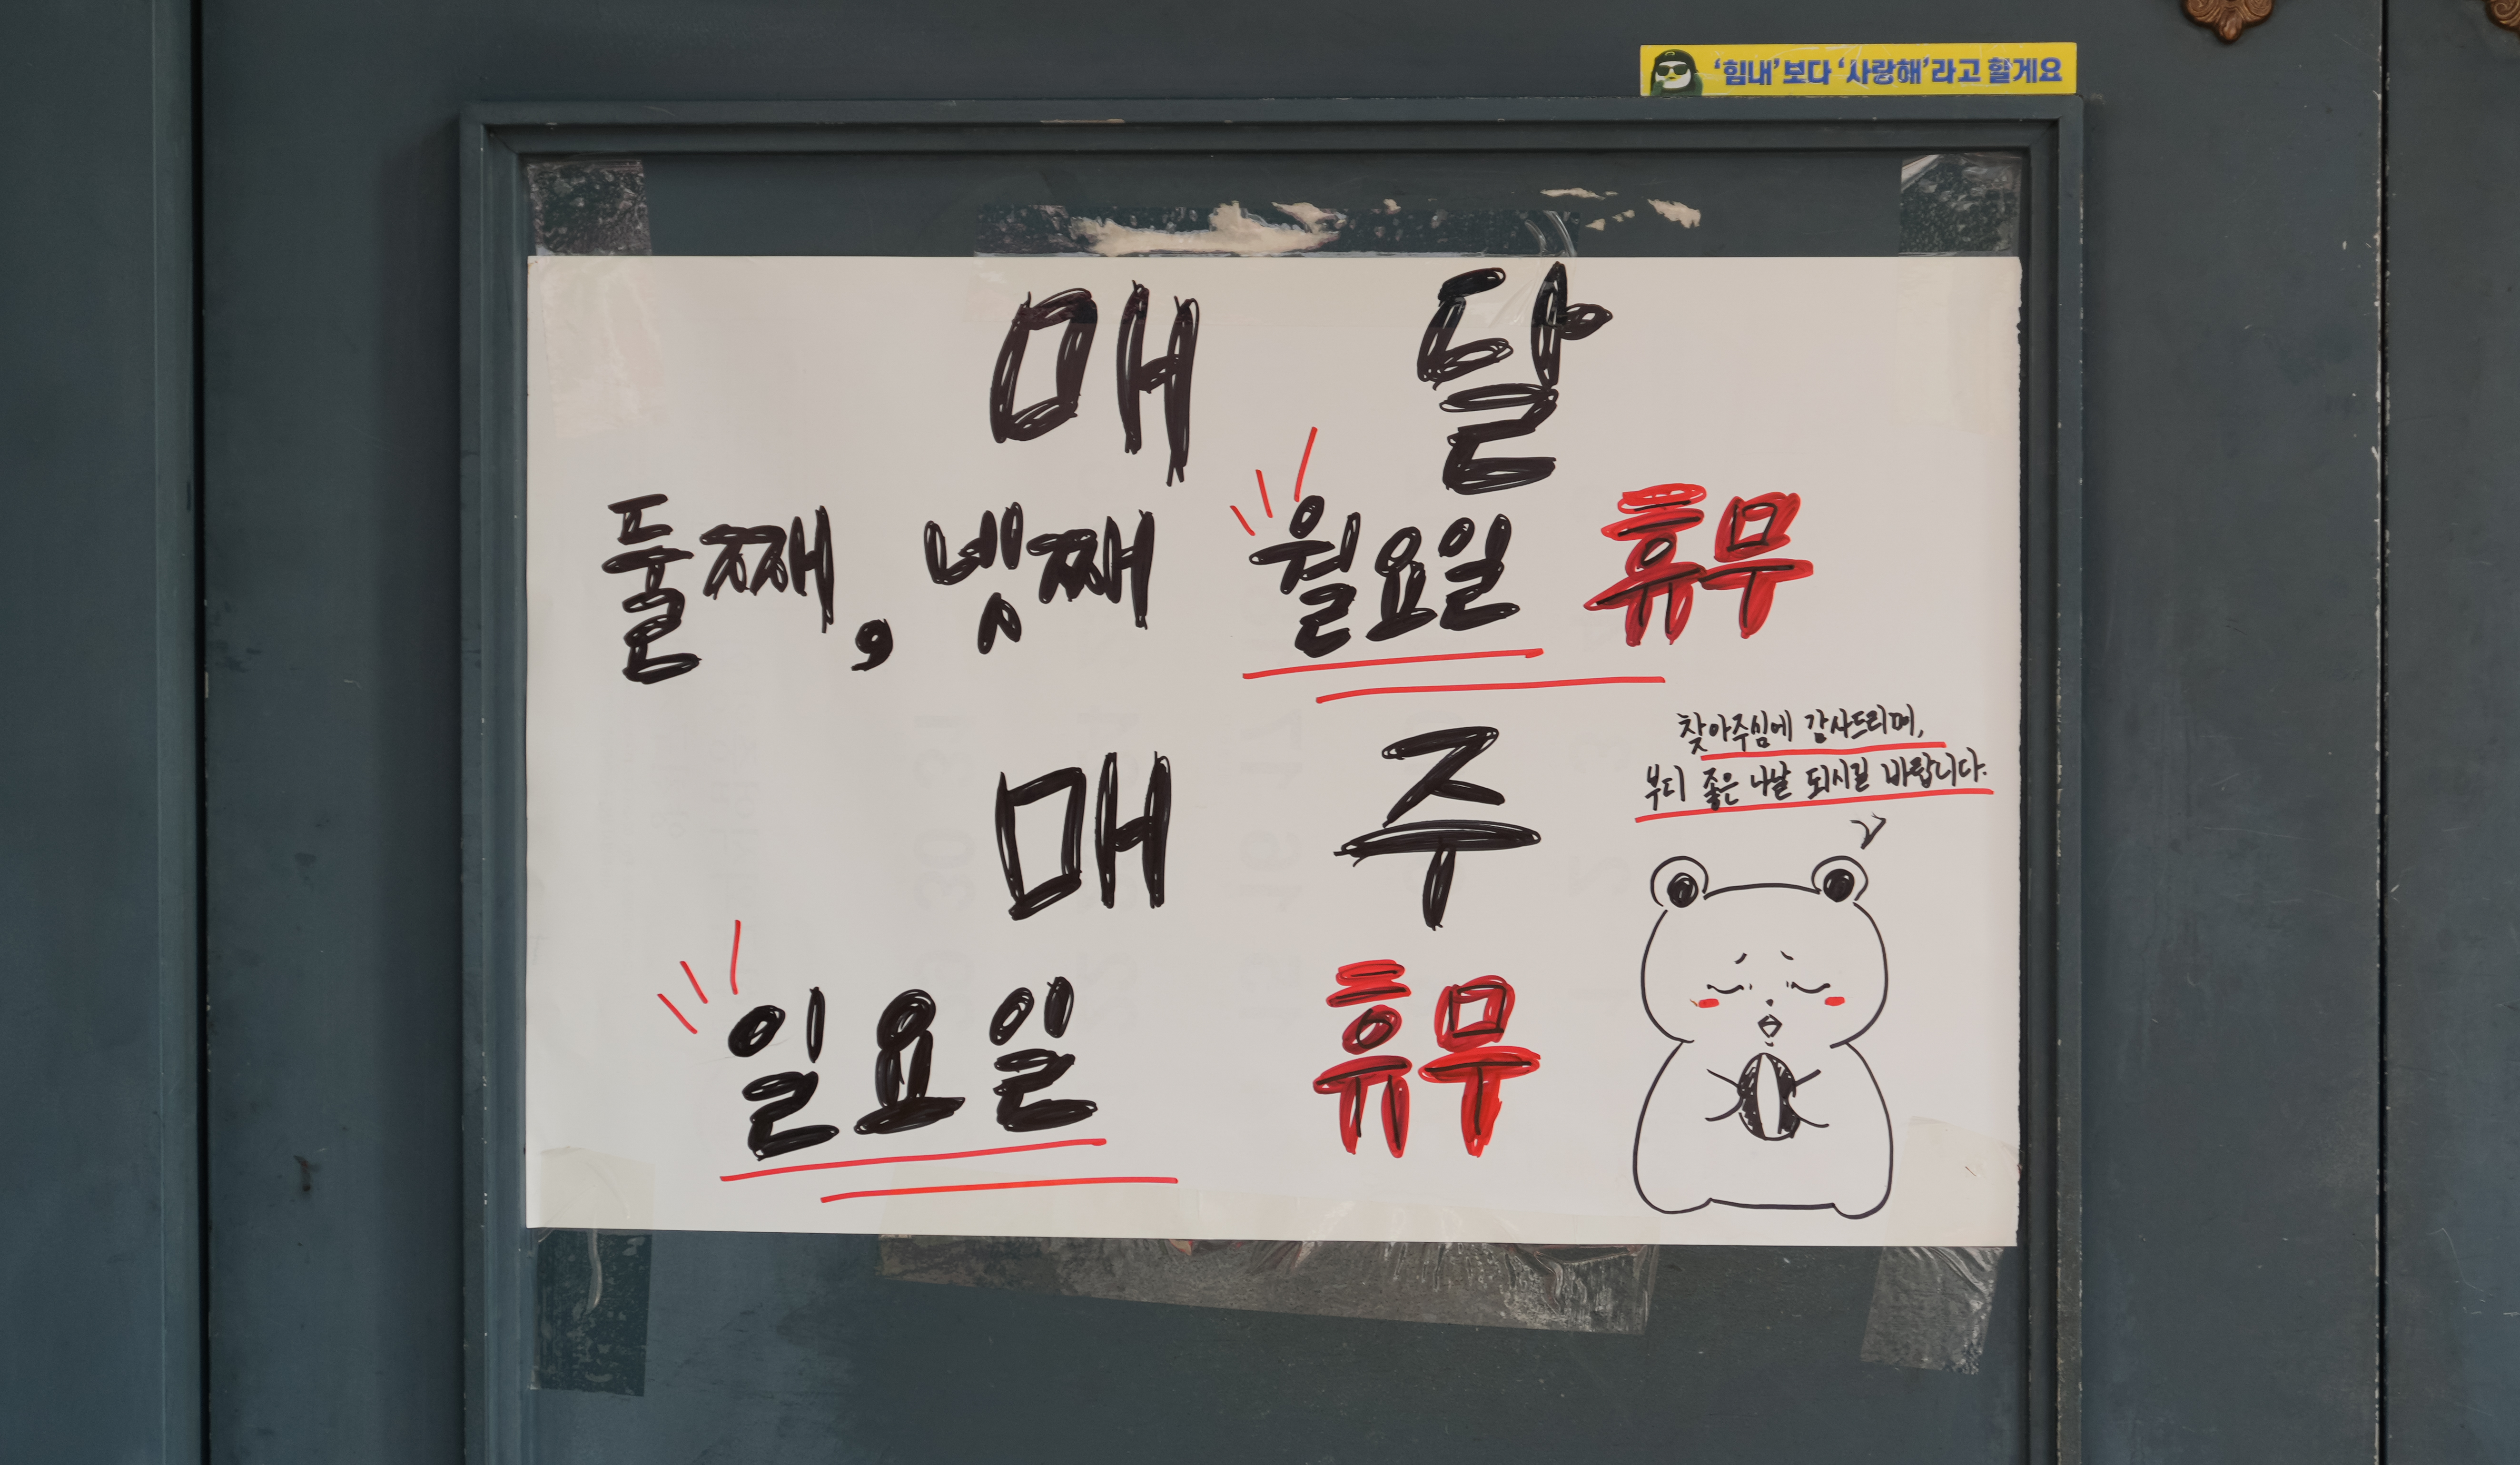 '힘내'보다 '사랑해'라고 할게요
매 달
둘째, 넷째 월요일 휴무
찾아주심에 감사드리며,
부디 좋은 나날 되시길 바랍니다.
매 주
일요일 휴무